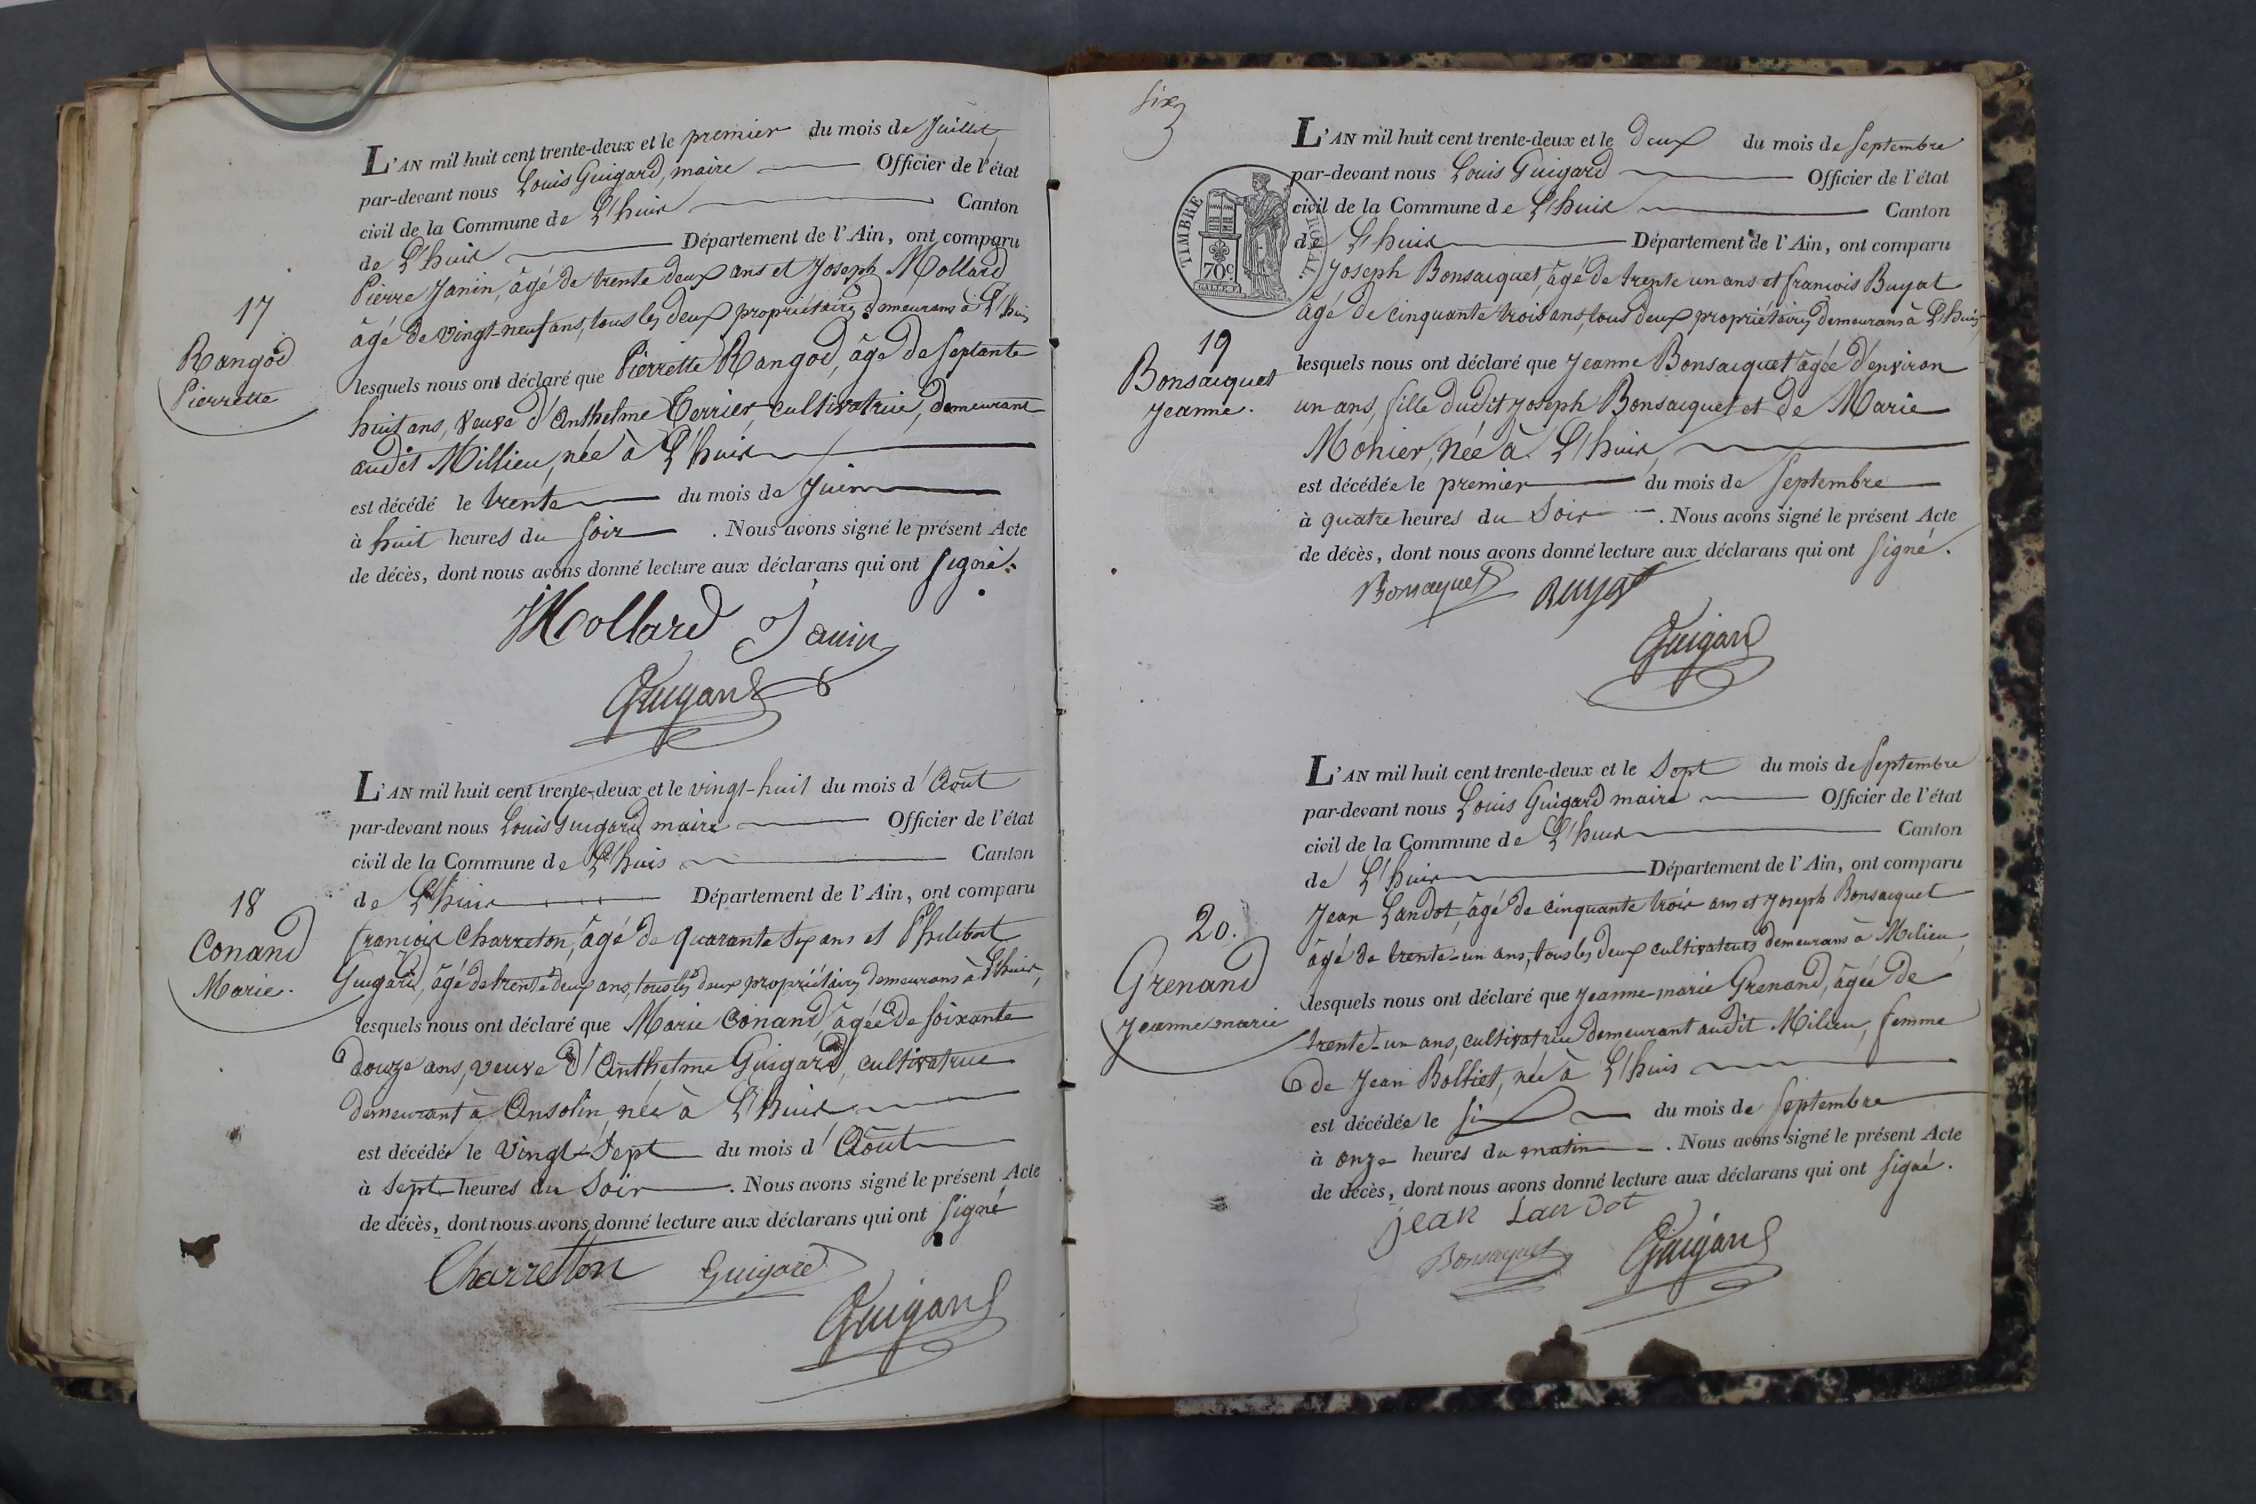 L'AN mil huit cent trente-deux et le premier du mois de Juillet,
par-devant nous Louis Guigard, maire Officier de l'état
civil de la Commune de L'huis Canton
de L'huis Département de l'Ain, ont comparu
Pierre Janin, âgé de trente deux ans et Joseph Mollard
âgé de vingt-neuf ans, tous les deux propriétaires demeurans à L'huis
lesquels nous ont déclaré que Pierrette Rangod, âgé de septante
huit ans, veuve d'Anthelme Terrier cultivatrice, demeurant
audit Millieu, née à L'huis
est décédé le trente du mois de Juin
à huit heures du soir. Nous avons signé le présent Acte
de décès, dont nous avons donné lecture aux déclarans qui ont signé.
17
Rangod
Pierrette
Mollard Janin
Guigard
L'AN mil huit cent trente-deux et le vingt-huit du mois d'Août
par-devant nous Louis Guigard maire Officier de l'état
civil de la Commune de L'huis Canton
de L'huis Département de l'Ain, ont comparu
françois Charreton, âgé de quarante six ans et Philibert
Guigard, âgé de trente deux ans, tous les deux propriétaires demeurans à L'huis,
lesquels nous ont déclaré que Marie Conand âgée de soixante
douze ans, veuve d'Anthelme Guigard, cultivatrice
demeurant à Ansolin, née à L'huis
est décédée le vingt-sept du mois d'Août
à sept heures du soir. Nous avons signé le présent Acte
de décès, dont nous avons donné lecture aux déclarans qui ont signé
18
Conand
Marie.
Charretton Guigard
Guigard
six
TIMBRE ROYAL.
70c
L'AN mil huit cent trente-deux et le deux du mois de septembre
par-devant nous Louis Guigard Officier de l'état
civil de la Commune de L'huis Canton
de L'huis Département de l'Ain, ont comparu
Joseph Bonsacquet, âgé de trente un ans et françois Buyat
âgé de cinquante trois ans, tous deux propriétaires demeurans à L'huis,
lesquels nous ont déclaré que Jeanne Bonsacquet âgée d'environ
un ans, fille dudit Joseph Bonsacquet et de Marie
Mohier, née à L'huis,
est décédée le premier du mois de septembre
à quatre heures du soir. Nous avons signé le présent Acte
de décès, dont nous avons donné lecture aux déclarans qui ont signé.
19
Bonsacquet
Jeanne.
Bonsaquet Buyat
Guigard
L'AN mil huit cent trente-deux et le sept du mois de septembre
par-devant nous Louis Guigard maire Officier de l'état
civil de la Commune de L'huis Canton
de L'huis Département de l'Ain, ont comparu
Jean Landot, âgé de cinquante trois ans et Joseph Bonsacquet
âgé de trente-un ans, tous les deux cultivateurs demeurans à Milieu,
lesquels nous ont déclaré que Jeanne-marie Grenand, âgée de
trente-un ans, cultivatrice demeurant audit Milieu, femme
de Jean Bolliet, née à L'huis
est décédée le six du mois de septembre
à onze heures du matin. Nous avons signé le présent Acte
de décès, dont nous avons donné lecture aux déclarans qui ont signé.
20.
Grenand
Jeanne marie
jean Landot
Bonsaquet Guigard